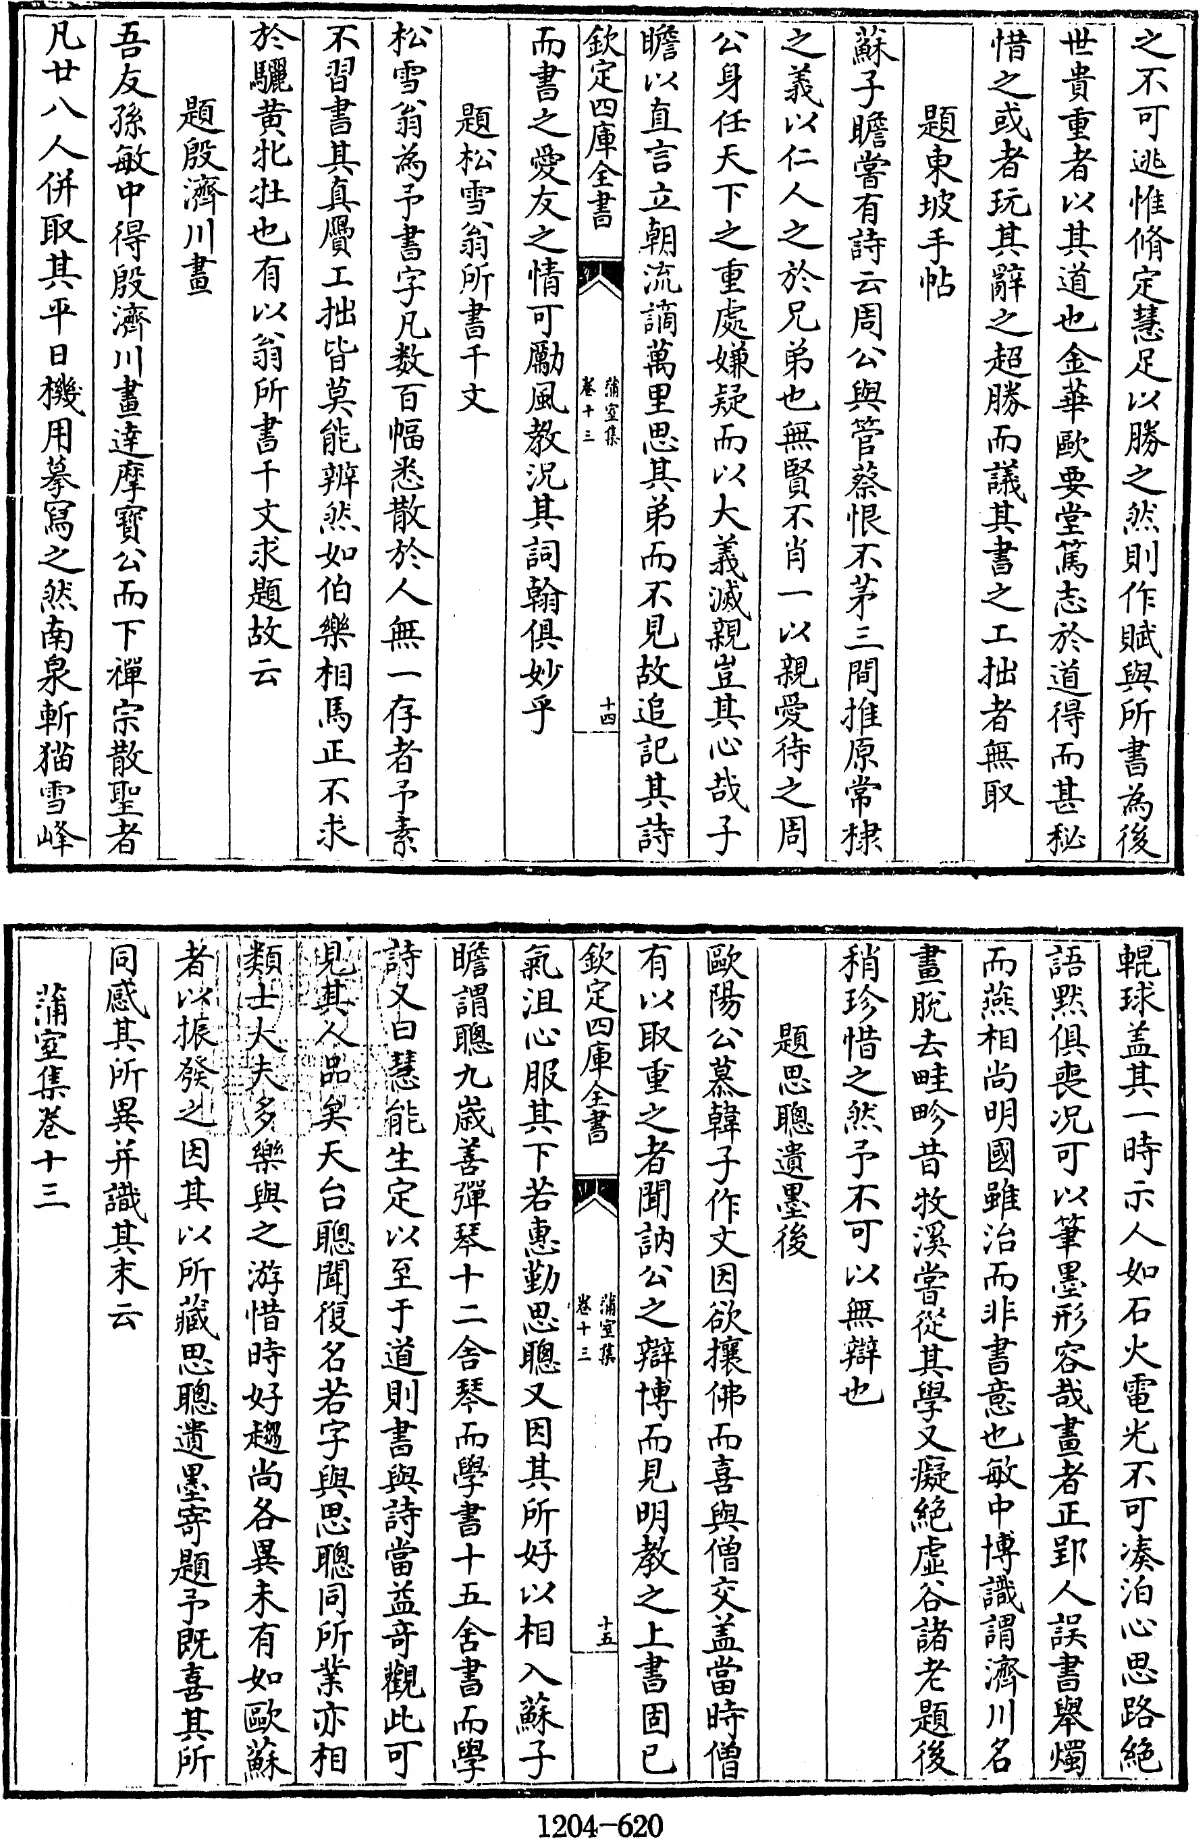 之不可逃惟脩定慧足以勝之然則作賦與所書為後
世貴重者以其道也金華歐要堂篤志於道得而甚秘
惜之或者玩其辭之超勝而議其書之工拙者無取
題東坡手帖
蘇子瞻嘗有詩云周公與管蔡恨不茅三間推原常棣
之義以仁人之於兄弟也無賢不肖一以親愛待之周
公身任天下之重處嫌疑而以大義滅親豈其心哉子
瞻以直言立朝流謫萬里思其弟而不見故追記其詩
欽定四庫全書
蒲室集
卷十三
十四
而書之愛友之情可勵風教況其詞翰俱妙乎
題松雪翁所書千文
松雪翁為予書字凡数百幅悉散於人無一存者予素
不習書其真贗工拙皆莫能辨然如伯樂相馬正不求
於驪黄牝牡也有以翁所書千文求題故云
題殷濟川畫
吾友孫敏中得殷濟川畫達摩寶公而下禪宗散聖者
凡廿八人併取其平日機用摹寫之然南泉斬猫雪峰
輥球盖其一時示人如石火電光不可凑泊心思路絶
語黙俱喪况可以筆墨形容哉畫者正郢人誤書舉燭
而燕相尚明國雖治而非書意也敏中博識謂濟川名
畫脱去畦畛昔牧溪嘗從其學又癡絶虚谷諸老題後
稍珍惜之然予不可以無辯也
題思聰遺墨後
歐陽公慕韓子作文因欲攘佛而喜與僧交盖當時僧
有以取重之者聞訥公之辯博而見明教之上書固已
欽定四庫全書
蒲室集
卷十三
十五
氣沮心服其下若惠勤思聰又因其所好以相入蘇子
瞻謂聰九歲善彈琴十二舍琴而學書十五舍書而學
詩又曰慧能生定以至于道則書與詩當益竒觀此可
見其人品矣天台聰聞復名若字與思聰同所業亦相
類士大夫多樂與之游惜時好趨尚各異未有如歐蘇
者以振發之因其以所藏思聰遺墨寄題予既喜其所
同感其所異并識其末云
蒲室集卷十三
1204-620